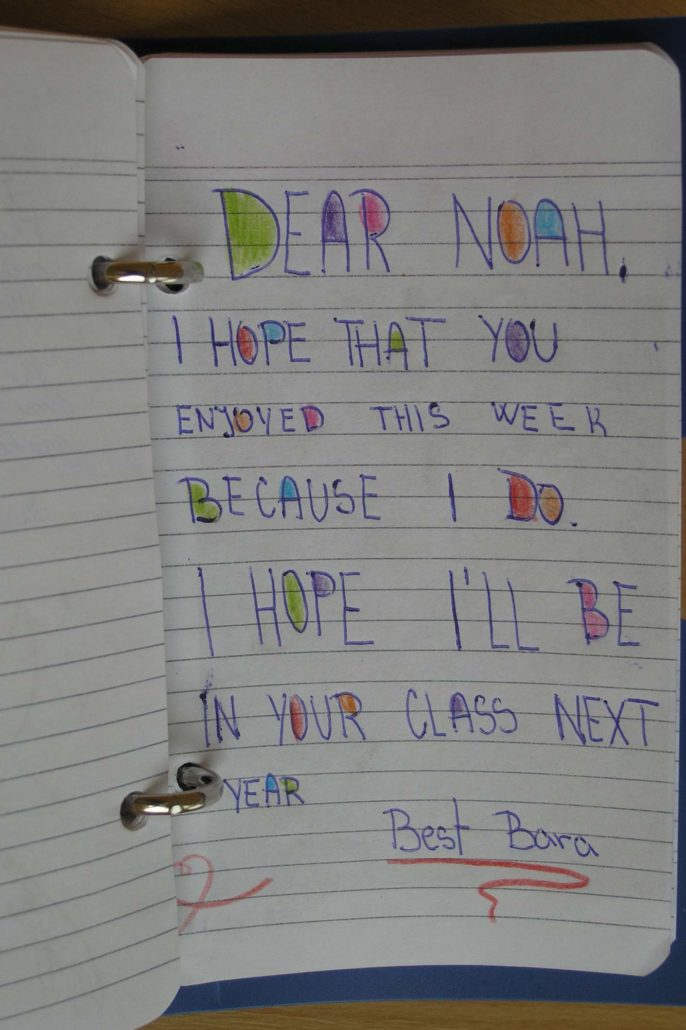 DEAR NOAH,
I HOPE THAT YOU
ENJOYED THIS WEEK
BECAUSE I DO.
I HOPE I'LL BE
IN YOUR CLASS NEXT
YEAR
Best Bara